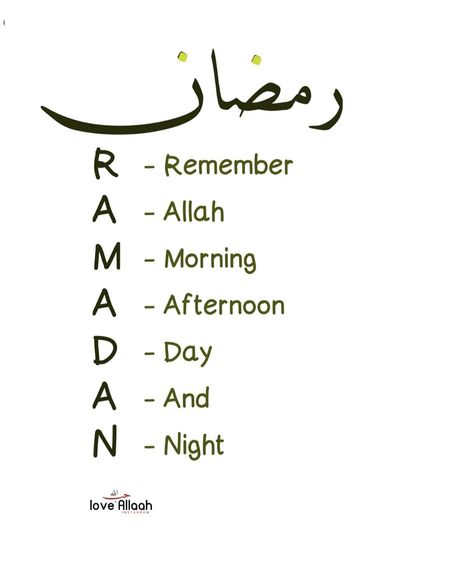 رمضان
R - Remember
A - Allah
M - Morning
A - Afternoon
D - Day
A - And
N - Night
love Allaah
INSTAGRAM